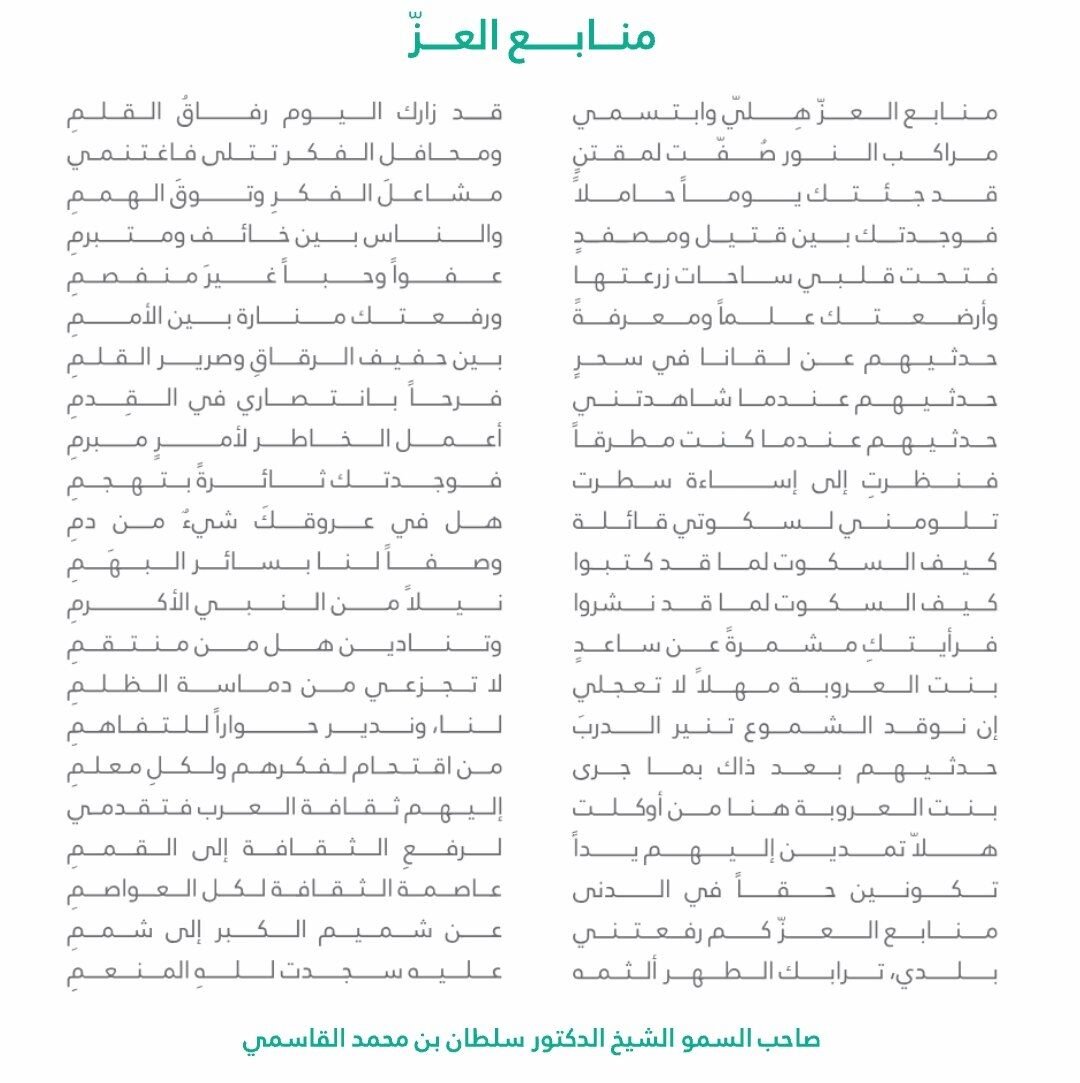 منابع العزّ
منابع العزّ هِليّ وابتسمي قد زارك اليوم رفاقُ القلمِ
مراكب النور صُفّت لمقتنٍ ومحافل الفكر تتلى فاغتنمي
قد جئتك يوماً حاملاً مشاعلَ الفكرِ وتوقَ الهممِ
فوجدتك بين قتيل ومصفدٍ والناس بين خائف ومتبرمِ
فتحت قلبي ساحات زرعتها عفواً وحباً غيرَ منفصمِ
وأرضعتك علماً ومعرفةً ورفعتك منارة بين الأممِ
حدثيهم عن لقانا في سحرٍ بين حفيف الرقاقِ وصرير القلمِ
حدثيهم عندما شاهدتني فرحاً بانتصاري في القِدمِ
حدثيهم عندما كنت مطرقاً أعمل الخاطر لأمرٍ مبرمِ
فنظرتِ إلى إساءة سطرت فوجدتك ثائرةً بتهجمِ
تلومني لسكوتي قائلة هل في عروقكَ شيءٌ من دمِ
كيف السكوت لما قد كتبوا وصفاً لنا بسائر البهَمِ
كيف السكوت لما قد نشروا نيلاً من النبي الأكرمِ
فرأيتكِ مشمرةً عن ساعدٍ وتنادين هل من منتقمِ
بنت العروبة مهلاً لا تعجلي لا تجزعي من دماسة الظلمِ
إن نوقد الشموع تنير الدربَ لنا، وندير حواراً للتفاهمِ
حدثيهم بعد ذاك بما جرى من اقتحام لفكرهم ولكلِ معلمِ
بنت العروبة هنا من أوكلت إليهم ثقافة العرب فتقدمي
هلاّ تمدين إليهم يداً لرفعِ الثقافة إلى القممِ
تكونين حقاً في الدنى عاصمة الثقافة لكل العواصمِ
منابع العزّ كم رفعتني عن شميم الكبر إلى شممِ
بلدي، ترابك الطهر ألثمه عليه سجدت للهِ المنعمِ
صاحب السمو الشيخ الدكتور سلطان بن محمد القاسمي